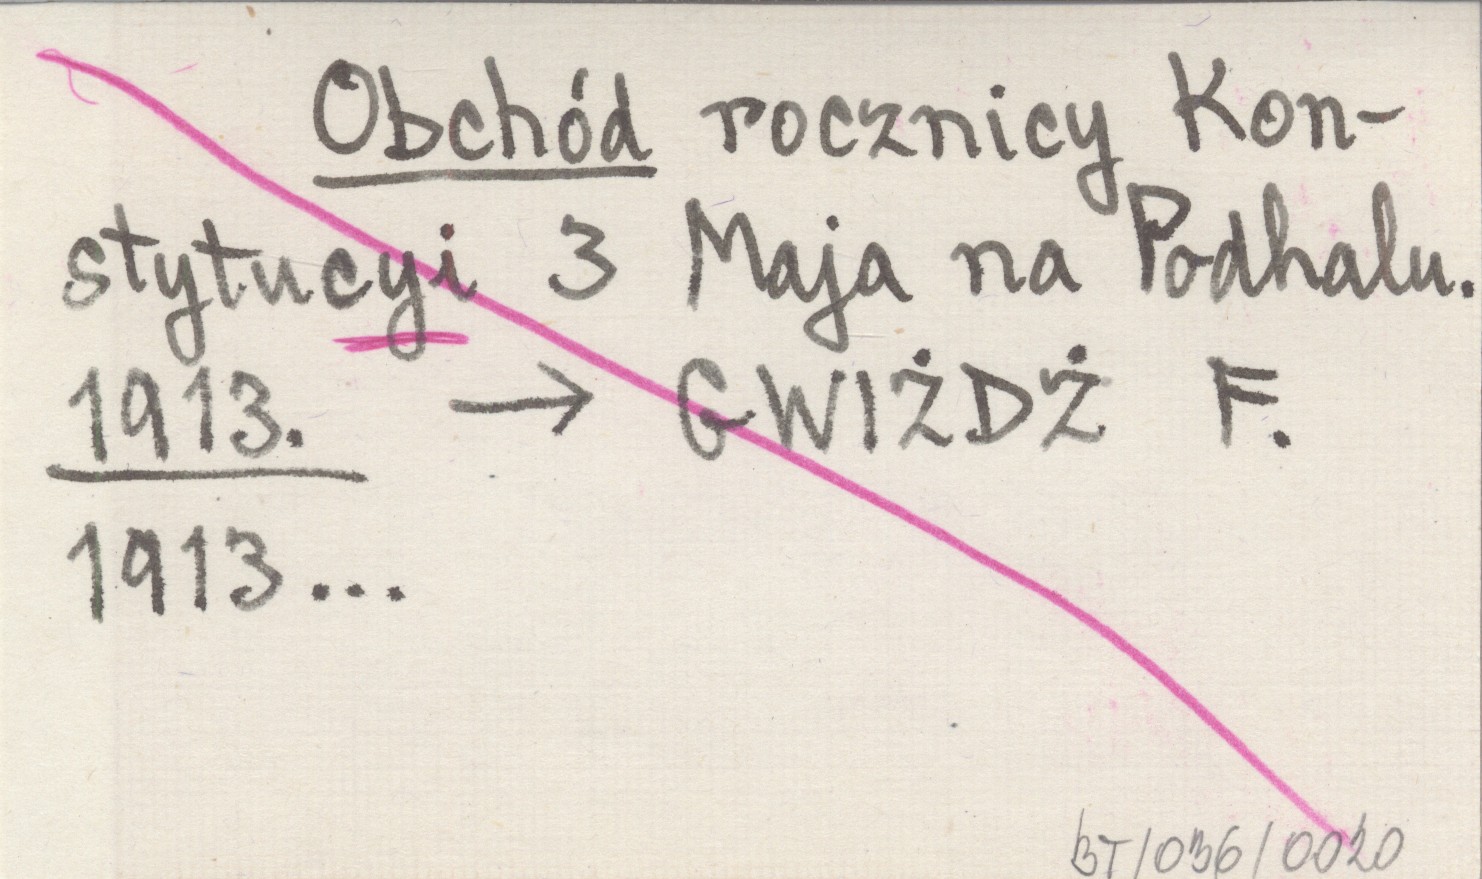 Obchód rocznicy Kon-
stytucyi 3 Maja na Podhalu.
1913. → GWIŻDŻ F.
1913...
BT/036/0020